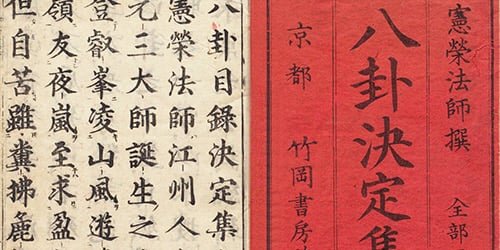 憲榮法師撰 全部
八卦決定集
京都 竹岡書房
八卦目錄決定集
憲榮法師江州人
元三大師誕生之
登叡峯凌山風遊
嶺友夜嵐至求盈
但自苦雖糞拂麁